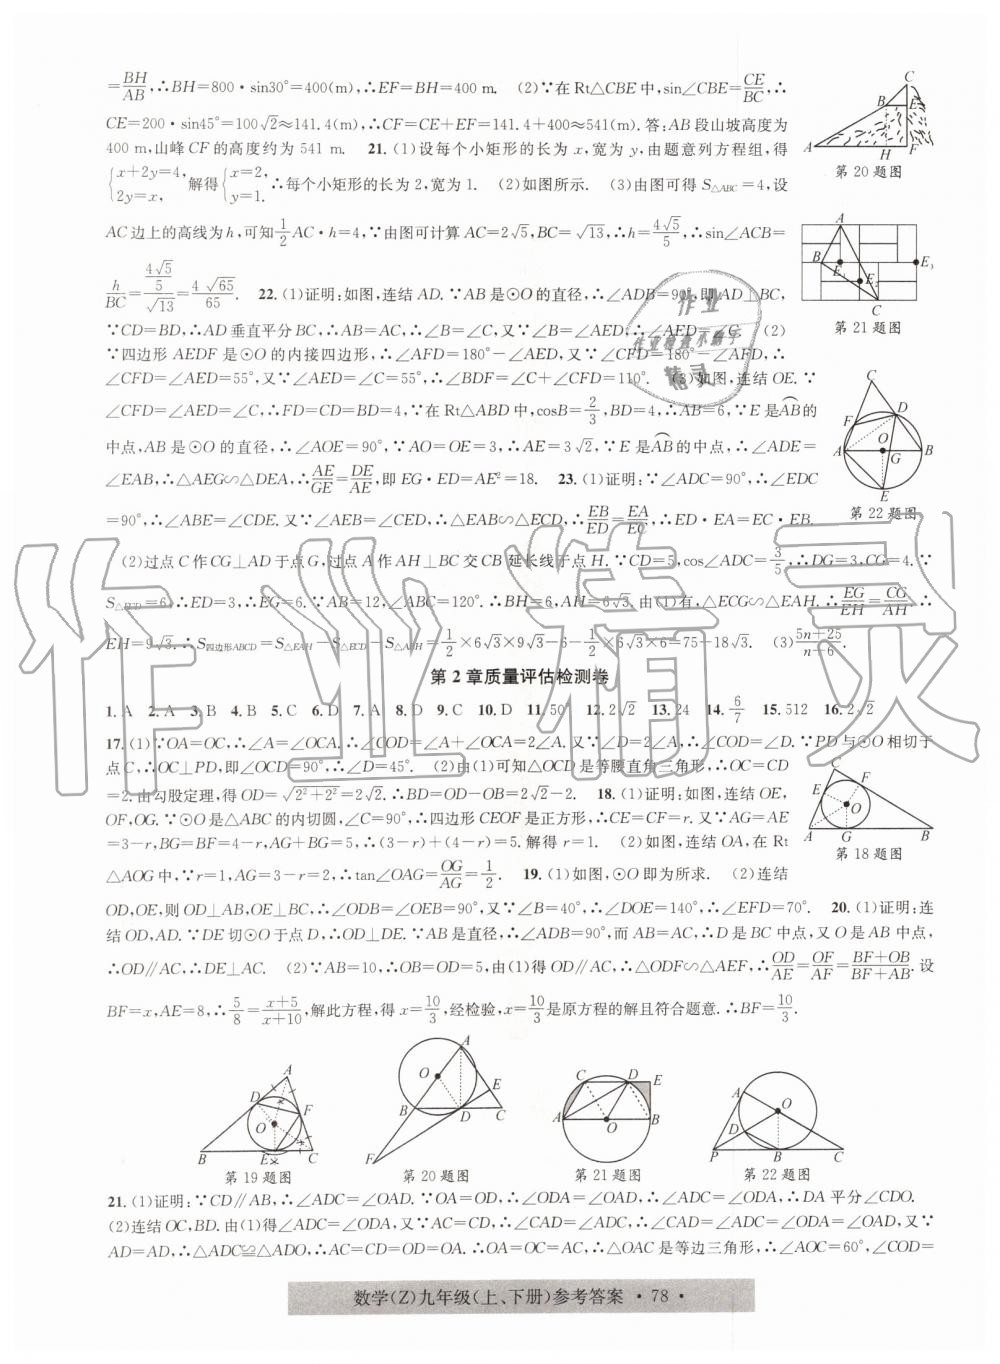 =BH/AB,∴BH=800·sin30°=400(m),∴EF=BH=400 m. (2)∵在Rt△CBE中,sin∠CBE=CE/BC,∴
CE=200·sin45°=100√2≈141.4(m),∴CF=CE+EF=141.4+400≈541(m).答:AB段山坡高度为
400 m,山峰CF的高度约为 541 m. 21.(1)设每个小矩形的长为x,宽为y,由题意列方程组,得
{x+2y=4, 2y=x, 解得{x=2, y=1. ∴每个小矩形的长为2,宽为1. (2)如图所示. (3)由图可得S△ABC=4,设
AC边上的高线为h,可知1/2AC·h=4,∵由图可计算AC=2√5,BC=√13,∴h=4√5/5,∴sin∠ACB=
h/BC=(4√5/5)/√13=4√65/65. 22.(1)证明:如图,连结AD.∵AB是⊙O的直径,∴∠ADB=90°,即AD⊥BC,
∵CD=BD,∴AD垂直平分BC,∴AB=AC,∴∠B=∠C,又∵∠B=∠E,∴∠E=∠C. (2)
∵四边形AEDF是⊙O的内接四边形,∴∠AFD=180°-∠AED,又∵∠CFD=180°-∠AFD,∴
∠CFD=∠AED=55°,又∵∠AED=∠C=55°,∴∠BDF=∠C+∠CFD=110°. (3)如图,连结OE.∵
∠CFD=∠AED=∠C,∴FD=CD=BD=4,∵在Rt△ABD中,cosB=2/3,BD=4,∴AB=6,∵E是AB的
中点,AB是⊙O的直径,∴∠AOE=90°,∵AO=OE=3,∴AE=3√2,∵E是AB的中点,∴∠ADE=
∠EAB,∴△AEG∽△DEA,∴AE/GE=DE/AE,即EG·ED=AE²=18. 23.(1)证明:∵∠ADC=90°,∴∠EDC
=90°,∴∠ABE=∠CDE.又∵∠AEB=∠CED,∴△EAB∽△ECD,∴EB/ED=EA/EC,∴ED·EA=EC·EB.
(2)过点C作CG⊥AD于点G,过点A作AH⊥BC交CB延长线于点H.∵CD=5,cos∠ADC=3/5,∴DG=3,CG=4.∵
S△ECD=6,∴ED=3,∴EG=6.∵AB=12,∠ABC=120°.∴BH=6,AH=6√3.由(1)有,△ECG∽△EAH.∴EG/EH=CG/AH.∴
EH=9√3.∴S四边形ABCD=S△EAH-S△ECD-S△ABH=1/2×6√3×9√3-6-1/2×6√3×6=75-18√3. (3)(5n+25)/(n+6).
第2章质量评估检测卷
1.A 2.A 3.B 4.B 5.C 6.D 7.A 8.D 9.C 10.D 11.50° 12.2√2 13.24 14.6/7 15.512 16.2√2
17.(1)∵OA=OC,∴∠A=∠OCA.∴∠COD=∠A+∠OCA=2∠A.又∵∠D=2∠A,∴∠COD=∠D.∵PD与⊙O相切于
点C,∴OC⊥PD,即∠OCD=90°,∴∠D=45°. (2)由(1)可知△OCD是等腰直角三角形,∴OC=CD
=2.由勾股定理,得OD=√(2²+2²)=2√2.∴BD=OD-OB=2√2-2. 18.(1)证明:如图,连结OE,
OF,OG.∵⊙O是△ABC的内切圆,∠C=90°,∴四边形CEOF是正方形,∴CE=CF=r.又∵AG=AE
=3-r,BG=BF=4-r,AG+BG=5,∴(3-r)+(4-r)=5.解得r=1. (2)如图,连结OA,在Rt
△AOG中,∵r=1,AG=3-r=2,∴tan∠OAG=OG/AG=1/2. 19.(1)如图,⊙O即为所求. (2)连结
OD,OE,则OD⊥AB,OE⊥BC,∴∠ODB=∠OEB=90°,又∵∠B=40°,∴∠DOE=140°,∴∠EFD=70°. 20.(1)证明:连
结OD,AD.∵DE切⊙O于点D,∴OD⊥DE.∵AB是直径,∴∠ADB=90°,而AB=AC,∴D是BC中点,又O是AB中点,
∴OD∥AC,∴DE⊥AC. (2)∵AB=10,∴OB=OD=5,由(1)得OD∥AC,∴△ODF∽△AEF,∴OD/AE=OF/AF=(BF+OB)/(BF+AB).设
BF=x,AE=8,∴5/8=(x+5)/(x+10),解此方程,得x=10/3,经检验,x=10/3是原方程的解且符合题意.∴BF=10/3.
21.(1)证明:∵CD∥AB,∴∠ADC=∠OAD.∵OA=OD,∴∠ODA=∠OAD,∴∠ADC=∠ODA,∴DA平分∠CDO.
(2)连结OC,BD.由(1)得∠ADC=∠ODA,又∵AC=CD,∴∠CAD=∠ADC,∴∠CAD=∠ADC=∠ODA=∠OAD,又∵
AD=AD,∴△ADC≌△ADO,∴AC=CD=OD=OA.∴OA=OC=AC,∴△OAC是等边三角形,∴∠AOC=60°,∠COD=
第20题图
第21题图
第22题图
第18题图
第19题图
第20题图
第21题图
第22题图
数学(Z)九年级(上、下册)参考答案 ·78·
作业精灵
作业
精灵